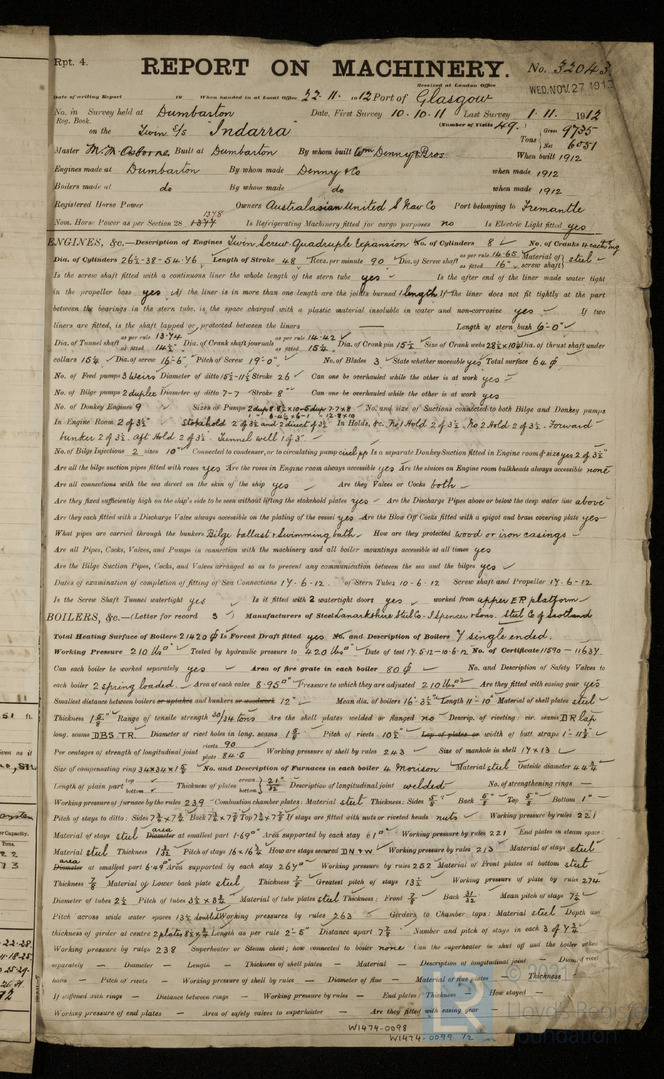 Rpt. 4.
REPORT ON MACHINERY.
No. 32043
Received at London Office WED. NOV. 27 1912
Date of writing Report 19 When handed in at Local Office 22.11.1912 Port of Glasgow
No. in Survey held at Dumbarton Date, First Survey 10.10.11 Last Survey 1.11.1912
Reg. Book. (Number of Visits 49.)
on the Twin S/S "Indarra" Tons Gross 9735 Net 6051
Master M. M. Osborne Built at Dumbarton By whom built Wm Denny & Bros When built 1912
Engines made at Dumbarton By whom made Denny & Co when made 1912
Boilers made at do By whom made do when made 1912
Registered Horse Power Owners Australasian United S Nav Co Port belonging to Fremantle
Nom. Horse Power as per Section 28 1378 Is Refrigerating Machinery fitted for cargo purposes no Is Electric Light fitted yes
ENGINES, &c.—Description of Engines Twin Screw Quadruple Expansion No. of Cylinders 8 No. of Cranks 4 each Eng
Dia. of Cylinders 26½-38-54-76 Length of Stroke 48 Revs. per minute 90 Dia. of Screw shaft as per rule 14.65 as fitted 16" Material of screw shaft steel
Is the screw shaft fitted with a continuous liner the whole length of the stern tube yes Is the after end of the liner made water tight
in the propeller boss yes If the liner is in more than one length are the joints burned 1 length If the liner does not fit tightly at the part
between the bearings in the stern tube, is the space charged with a plastic material insoluble in water and non-corrosive yes If two
liners are fitted, is the shaft lapped or protected between the liners — Length of stern bush 6'-0"
Dia. of Tunnel shaft as per rule 13.74 as fitted 14½ Dia. of Crank shaft journals as per rule 14.42 as fitted 15¼ Dia. of Crank pin 15½ Size of Crank webs 28½x10½ Dia. of thrust shaft under
collars 15¼ Dia. of screw 16'-6" Pitch of Screw 19'-0" No. of Blades 3 State whether moveable yes Total surface 64
No. of Feed pumps 3 Weirs Diameter of ditto 15½-11½ Stroke 26 Can one be overhauled while the other is at work yes
No. of Bilge pumps 2 duplex Diameter of ditto 7-7 Stroke 8" Can one be overhauled while the other is at work yes
No. of Donkey Engines 9 Sizes of Pumps No. and size of Suctions connected to both Bilge and Donkey pumps
In Engine Room 2 of 3½" Stokehold 2 of 3½ and 2 direct of 3½ In Holds, &c. No 1 Hold 2 of 3½. No 2 Hold 2 of 3½. Forward
bunker 2 of 3½. Aft Hold 2 of 3½. Tunnel well 1 of 3"
No. of Bilge Injections 2 sizes 10" Connected to condenser, or to circulating pump circ pp Is a separate Donkey Suction fitted in Engine room & size yes 2 of 3½"
Are all the bilge suction pipes fitted with roses yes Are the roses in Engine room always accessible yes Are the sluices on Engine room bulkheads always accessible none
Are all connections with the sea direct on the skin of the ship yes Are they Valves or Cocks both
Are they fixed sufficiently high on the ship's side to be seen without lifting the stokehold plates yes Are the Discharge Pipes above or below the deep water line above
Are they each fitted with a Discharge Valve always accessible on the plating of the vessel yes Are the Blow Off Cocks fitted with a spigot and brass covering plate yes
What pipes are carried through the bunkers Bilge ballast & Swimming bath How are they protected wood or iron casings
Are all Pipes, Cocks, Valves, and Pumps in connection with the machinery and all boiler mountings accessible at all times yes
Are the Bilge Suction Pipes, Cocks, and Valves arranged so as to prevent any communication between the sea and the bilges yes
Dates of examination of completion of fitting of Sea Connections 17.6.12 of Stern Tubes 10.6.12 Screw shaft and Propeller 17.6.12
Is the Screw Shaft Tunnel watertight yes Is it fitted with 2 watertight doors yes worked from upper ER platform
BOILERS, &c.—(Letter for record S) Manufacturers of Steel Lanarkshire Steel Co. J Spencer & Sons. Steel Co of Scotland
Total Heating Surface of Boilers 21420 Is Forced Draft fitted yes No. and Description of Boilers 7 single ended.
Working Pressure 210 lbs Tested by hydraulic pressure to 420 lbs Date of test 17.5.12-10.6.12 No. of Certificate 11590-11634
Can each boiler be worked separately yes Area of fire grate in each boiler 80 No. and Description of Safety Valves to
each boiler 2 spring loaded. Area of each valve 8.95" Pressure to which they are adjusted 210 lbs Are they fitted with easing gear yes
Smallest distance between boilers or uptakes and bunkers or woodwork 12" Mean dia. of boilers 16'-3½" Length 11'-10" Material of shell plates steel
Thickness Range of tensile strength 30/34 tons Are the shell plates welded or flanged no Descrip. of riveting: cir. seams DR lap
long. seams DBS TR. Diameter of rivet holes in long. seams Pitch of rivets 10½ Lap of plates or width of butt straps 1'-11½
Per centages of strength of longitudinal joint rivets 90 plate 84.5 Working pressure of shell by rules 243 Size of manhole in shell 17x13
Size of compensating ring 34x34x1 No. and Description of Furnaces in each boiler 4 Morison Material steel Outside diameter 44¾
Length of plain part top bottom Thickness of plates crown bottom 21/32 Description of longitudinal joint welded No. of strengthening rings —
Working pressure of furnace by the rules 239 Combustion chamber plates: Material steel Thickness: Sides ⅝ Back ⅝ Top ⅝ Bottom 1"
Pitch of stays to ditto: Sides Back Top If stays are fitted with nuts or riveted heads nuts Working pressure by rules 221
Material of stays steel area at smallest part 1.69 Area supported by each stay 61 Working pressure by rules 221 End plates in steam space:
Material steel Thickness Pitch of stays 16x16½ How are stays secured DN & W Working pressure by rules 213 Material of stays steel
area at smallest part 6.49 Area supported by each stay 264 Working pressure by rules 252 Material of Front plates at bottom steel
Thickness ⅞ Material of Lower back plate steel Thickness ⅞ Greatest pitch of stays 13½ Working pressure of plate by rules 274
Diameter of tubes 2½ Pitch of tubes 3½x3¾ Material of tube plates steel Thickness: Front ⅞ Back 31/32 Mean pitch of stays 7½
Pitch across wide water spaces 13½ doubled Working pressures by rules 263 Girders to Chamber tops: Material steel Depth and
thickness of girder at centre 2 plates Length as per rule 2'-5" Distance apart 7⅞ Number and pitch of stays in each 3 of 7¾
Working pressure by rules 238 Superheater or Steam chest; how connected to boiler none Can the superheater be shut off and the boiler worked
separately — Diameter — Length — Thickness of shell plates — Material — Description of longitudinal joint — Diam. of rivet
holes — Pitch of rivets — Working pressure of shell by rules — Diameter of flue — Material of flue plates — Thickness
If stiffened with rings — Distance between rings — Working pressure by rules — End plates: Thickness — How stayed —
Working pressure of end plates — Area of safety valves to superheater — Are they fitted with easing gear —
W1474-0098
W1474-0099 1/2
LR
Lloyd's Register
Foundation